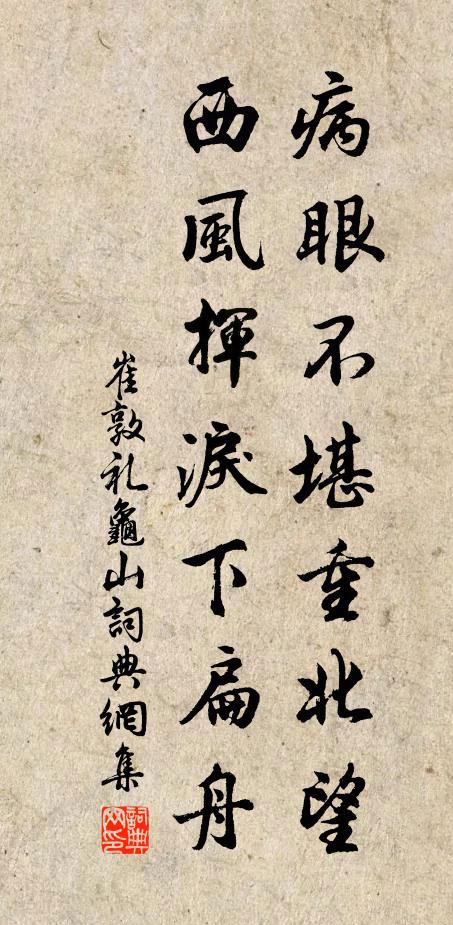 病眼不堪重北望
西風揮淚下扁舟
崔敦礼龜山詞典網集
詞典網印